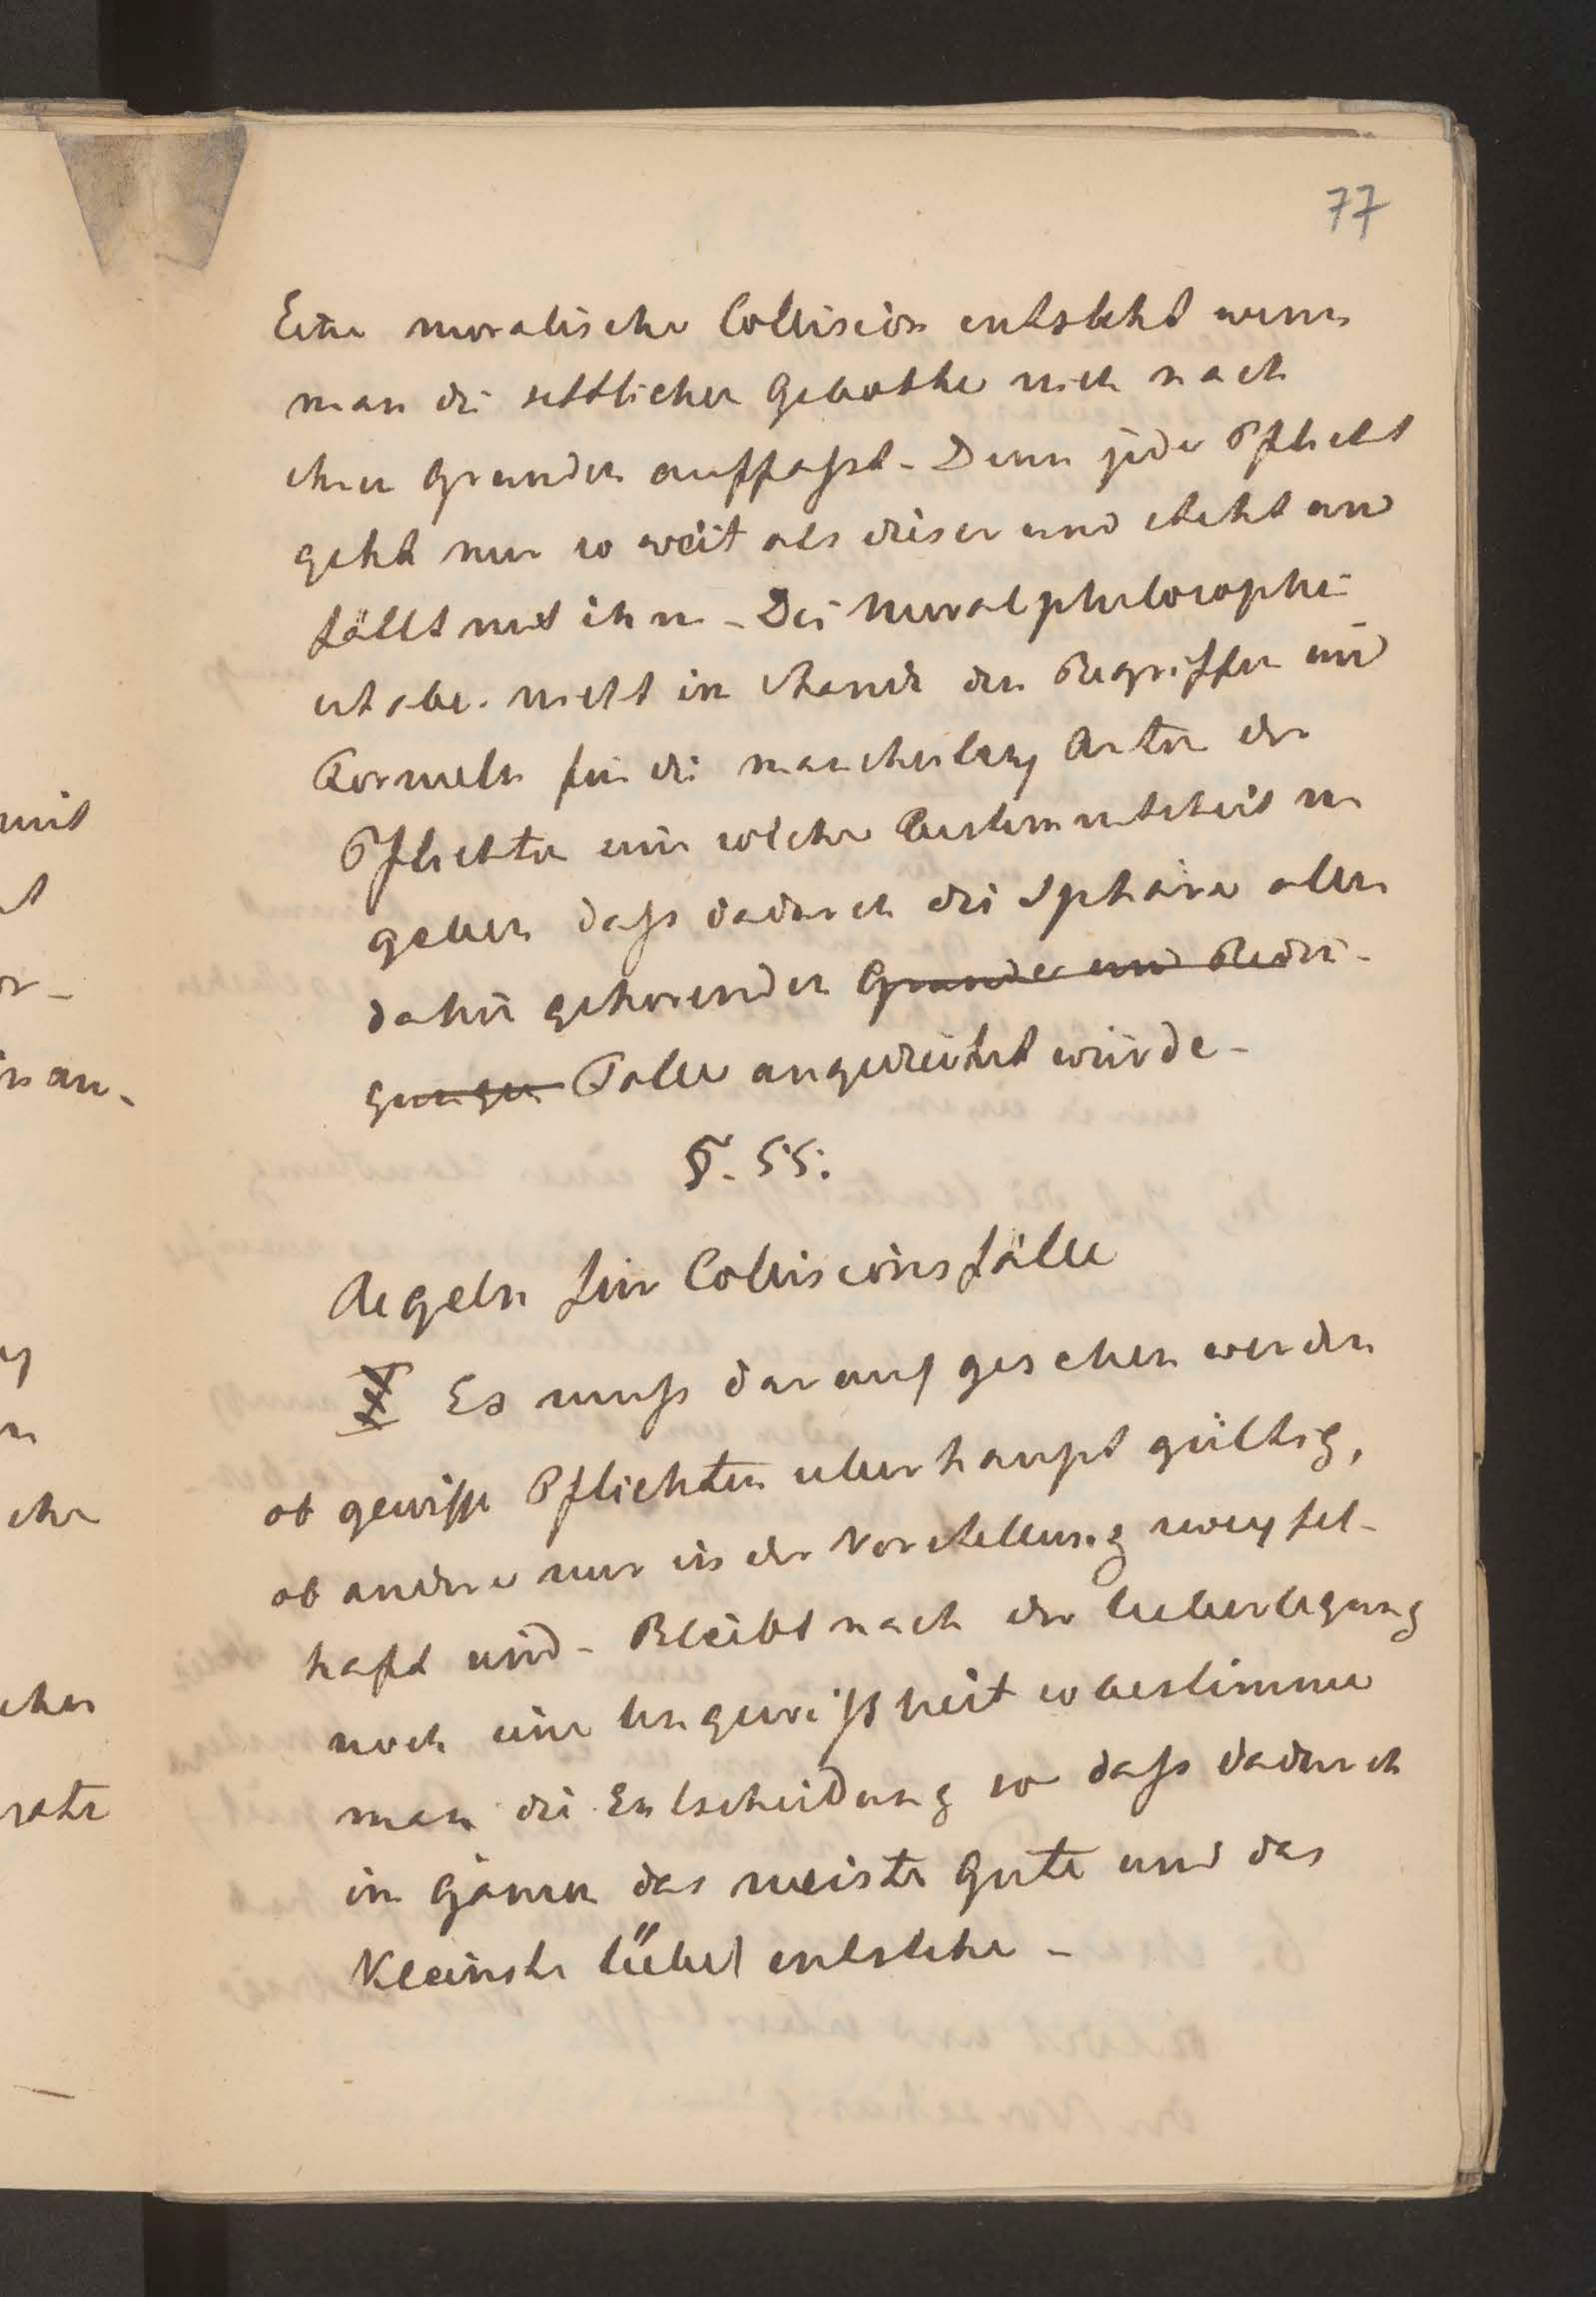 77
Eine moralische Collision entsteht wenn
man die sittlichen Gebothe nich nach
ihren Grunden auffaßt. Denn jede Pflicht
geht nur so weit als dieser und steht und
fällt mit ihm. Die Moralphilosophie
ist aber nicht im Stande den Begriffen und
Formeln für die mancherley Arten der
Pflichten eine solche Bestimmtheit zu
geben daß dadurch die Sphäre aller
dahin gehorenden Grunde und Bedin-
gungen Falle angedeutet würde.
§. 55.
Regeln für Collisionsfälle
I Es muß darauf gesehen werden
ob gewisse Pflichten uberhaupt gültig,
ob andere nur in der Vorstellung zweyfel-
haft sind. Bleibt nach der Ueberlegung
noch eine Ungewißheit so bestimme
man die Entscheidung so daß dadurch
im Ganzen das meiste Gute und das
Kleinste Uebel entstehe.
mit
t
or-
in an-
ey
n
che
chen
rate